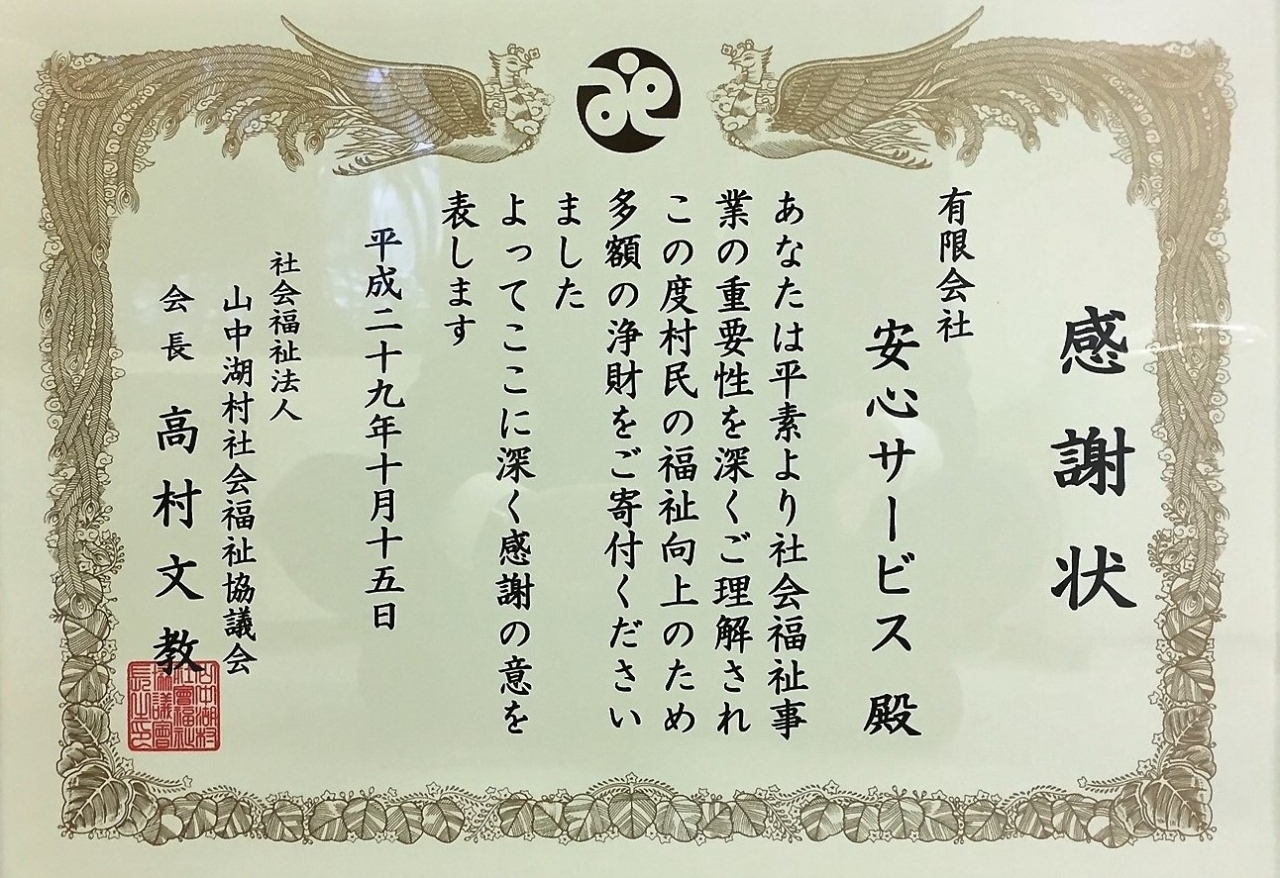 感謝状
有限会社
安心サービス 殿
あなたは平素より社会福祉事
業の重要性を深くご理解され
この度村民の福祉向上のため
多額の浄財をご寄付ください
ました
よってここに深く感謝の意を
表します
平成二十九年十月十五日
社会福祉法人
山中湖村社会福祉協議会
会長 高村文教
山中湖村
社會福祉
協議會
長之印